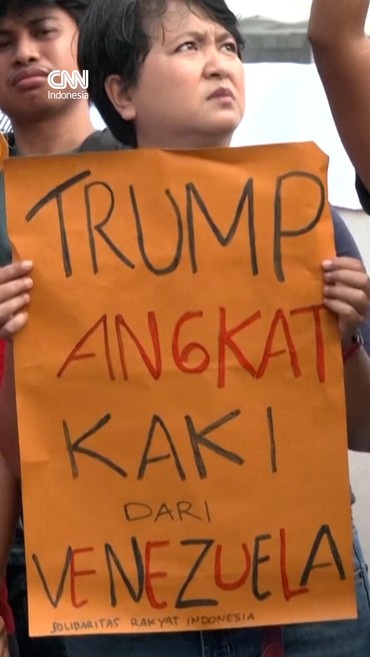 CNN
Indonesia
TRUMP
ANGKAT
KAKI
DARI
VENEZUELA
SOLIDARITAS RAKYAT INDONESIA